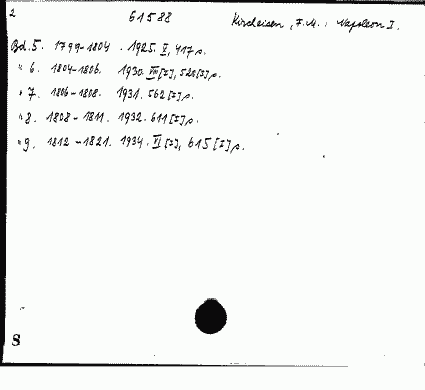 2 61588 Kircheisen, F.M.: Napoleon I.
Bd. 5. 1799-1804. 1925. X, 417 s.
" 6. 1804-1806. 1930. VIII [I], 520 [I] s.
" 7. 1806-1808. 1931. 562 [I] s.
" 8. 1808-1811. 1932. 611 [I] s.
" 9. 1812-1821. 1934. VI [I], 615 [I] s.
S